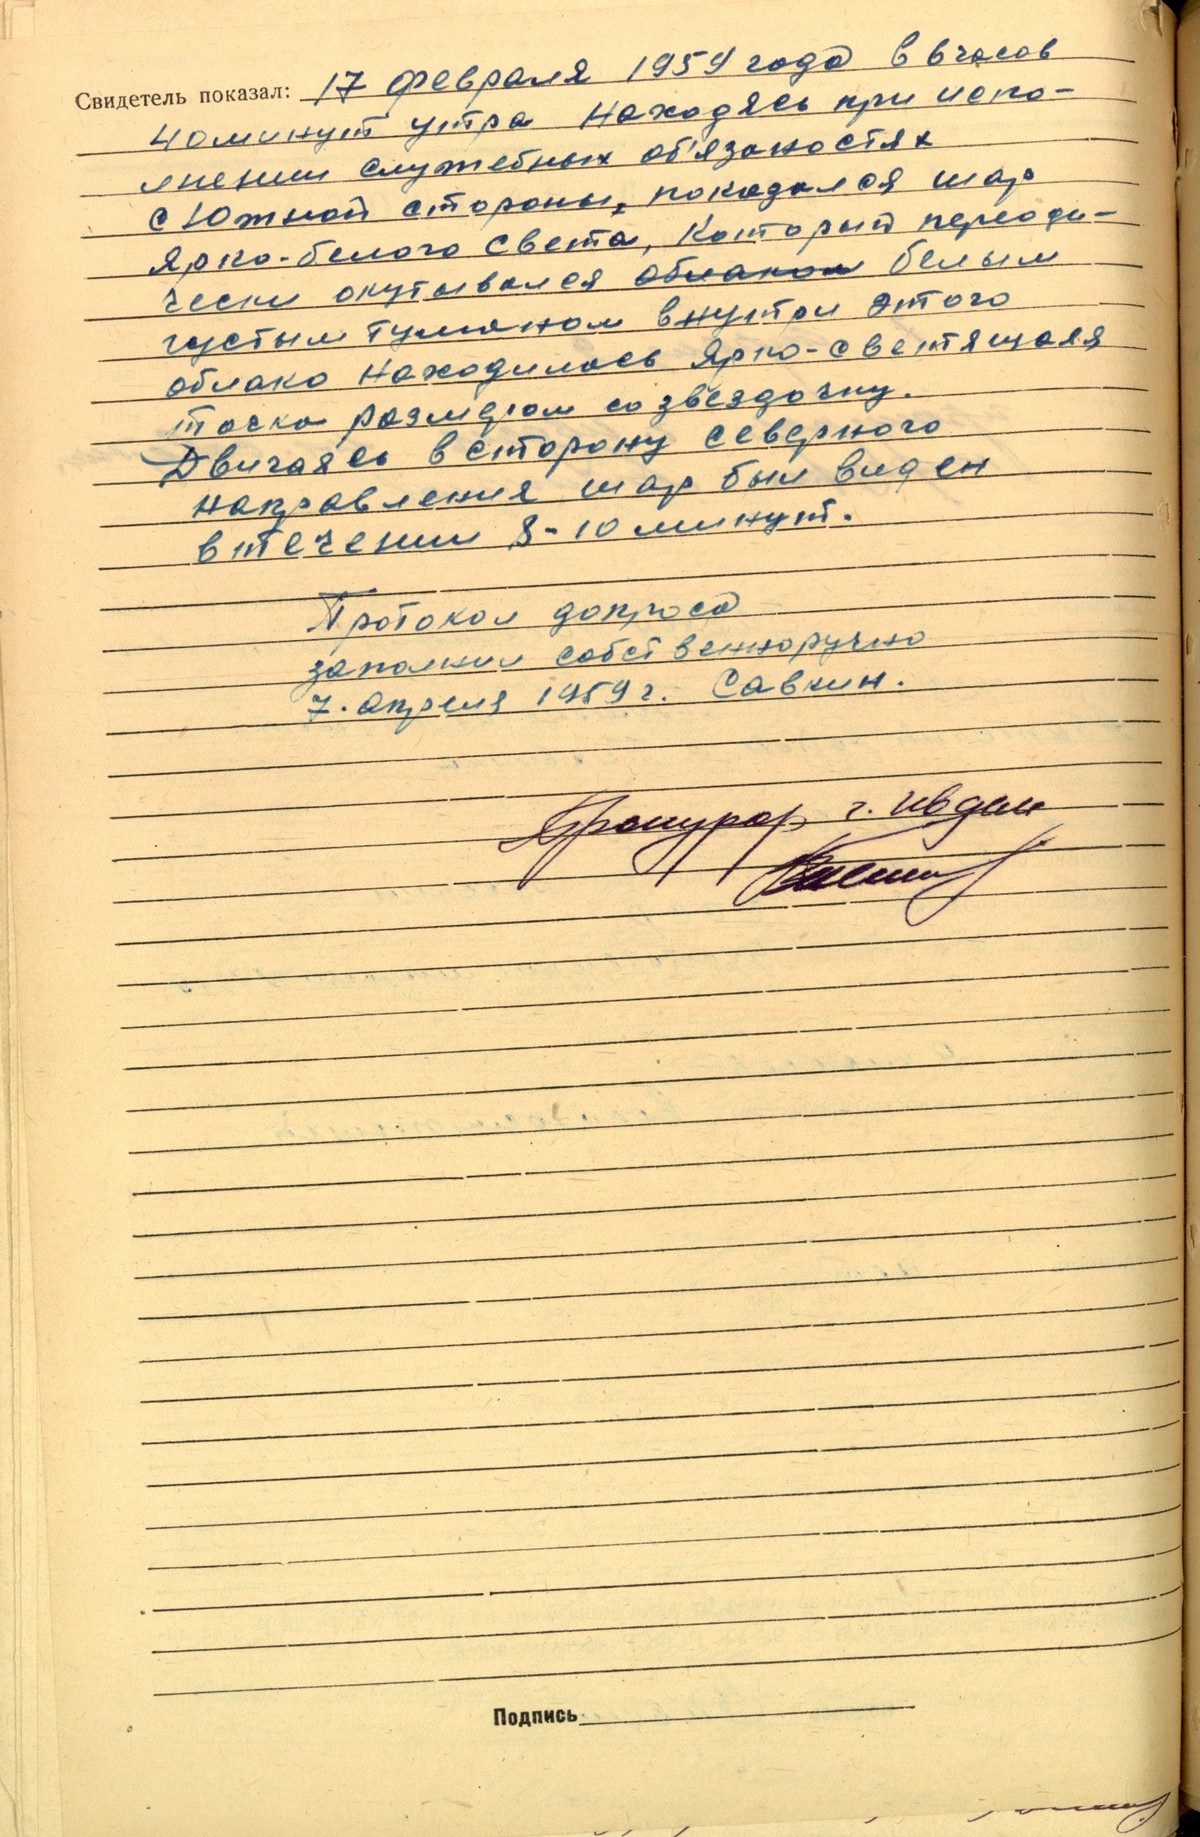 Свидетель показал: 17 февраля 1959 года в 6 часов
40 минут утра находясь при испо-
лнении служебных об'язаностях
с Южной стороны, показался шар
Ярко-белого света, Который переоди-
чески окутывался облаком белым
густым туманом внутри этого
облако находилась Ярко-светящаяя
точка размером со звездочку.
Двигаясь в сторону северного
направления шар был виден
в течении 8-10 минут.
Протокол допроса
заполнил собственноручно
7. апреля 1959 г. Савкин.
Прокурор г. Ивдель
Подпись